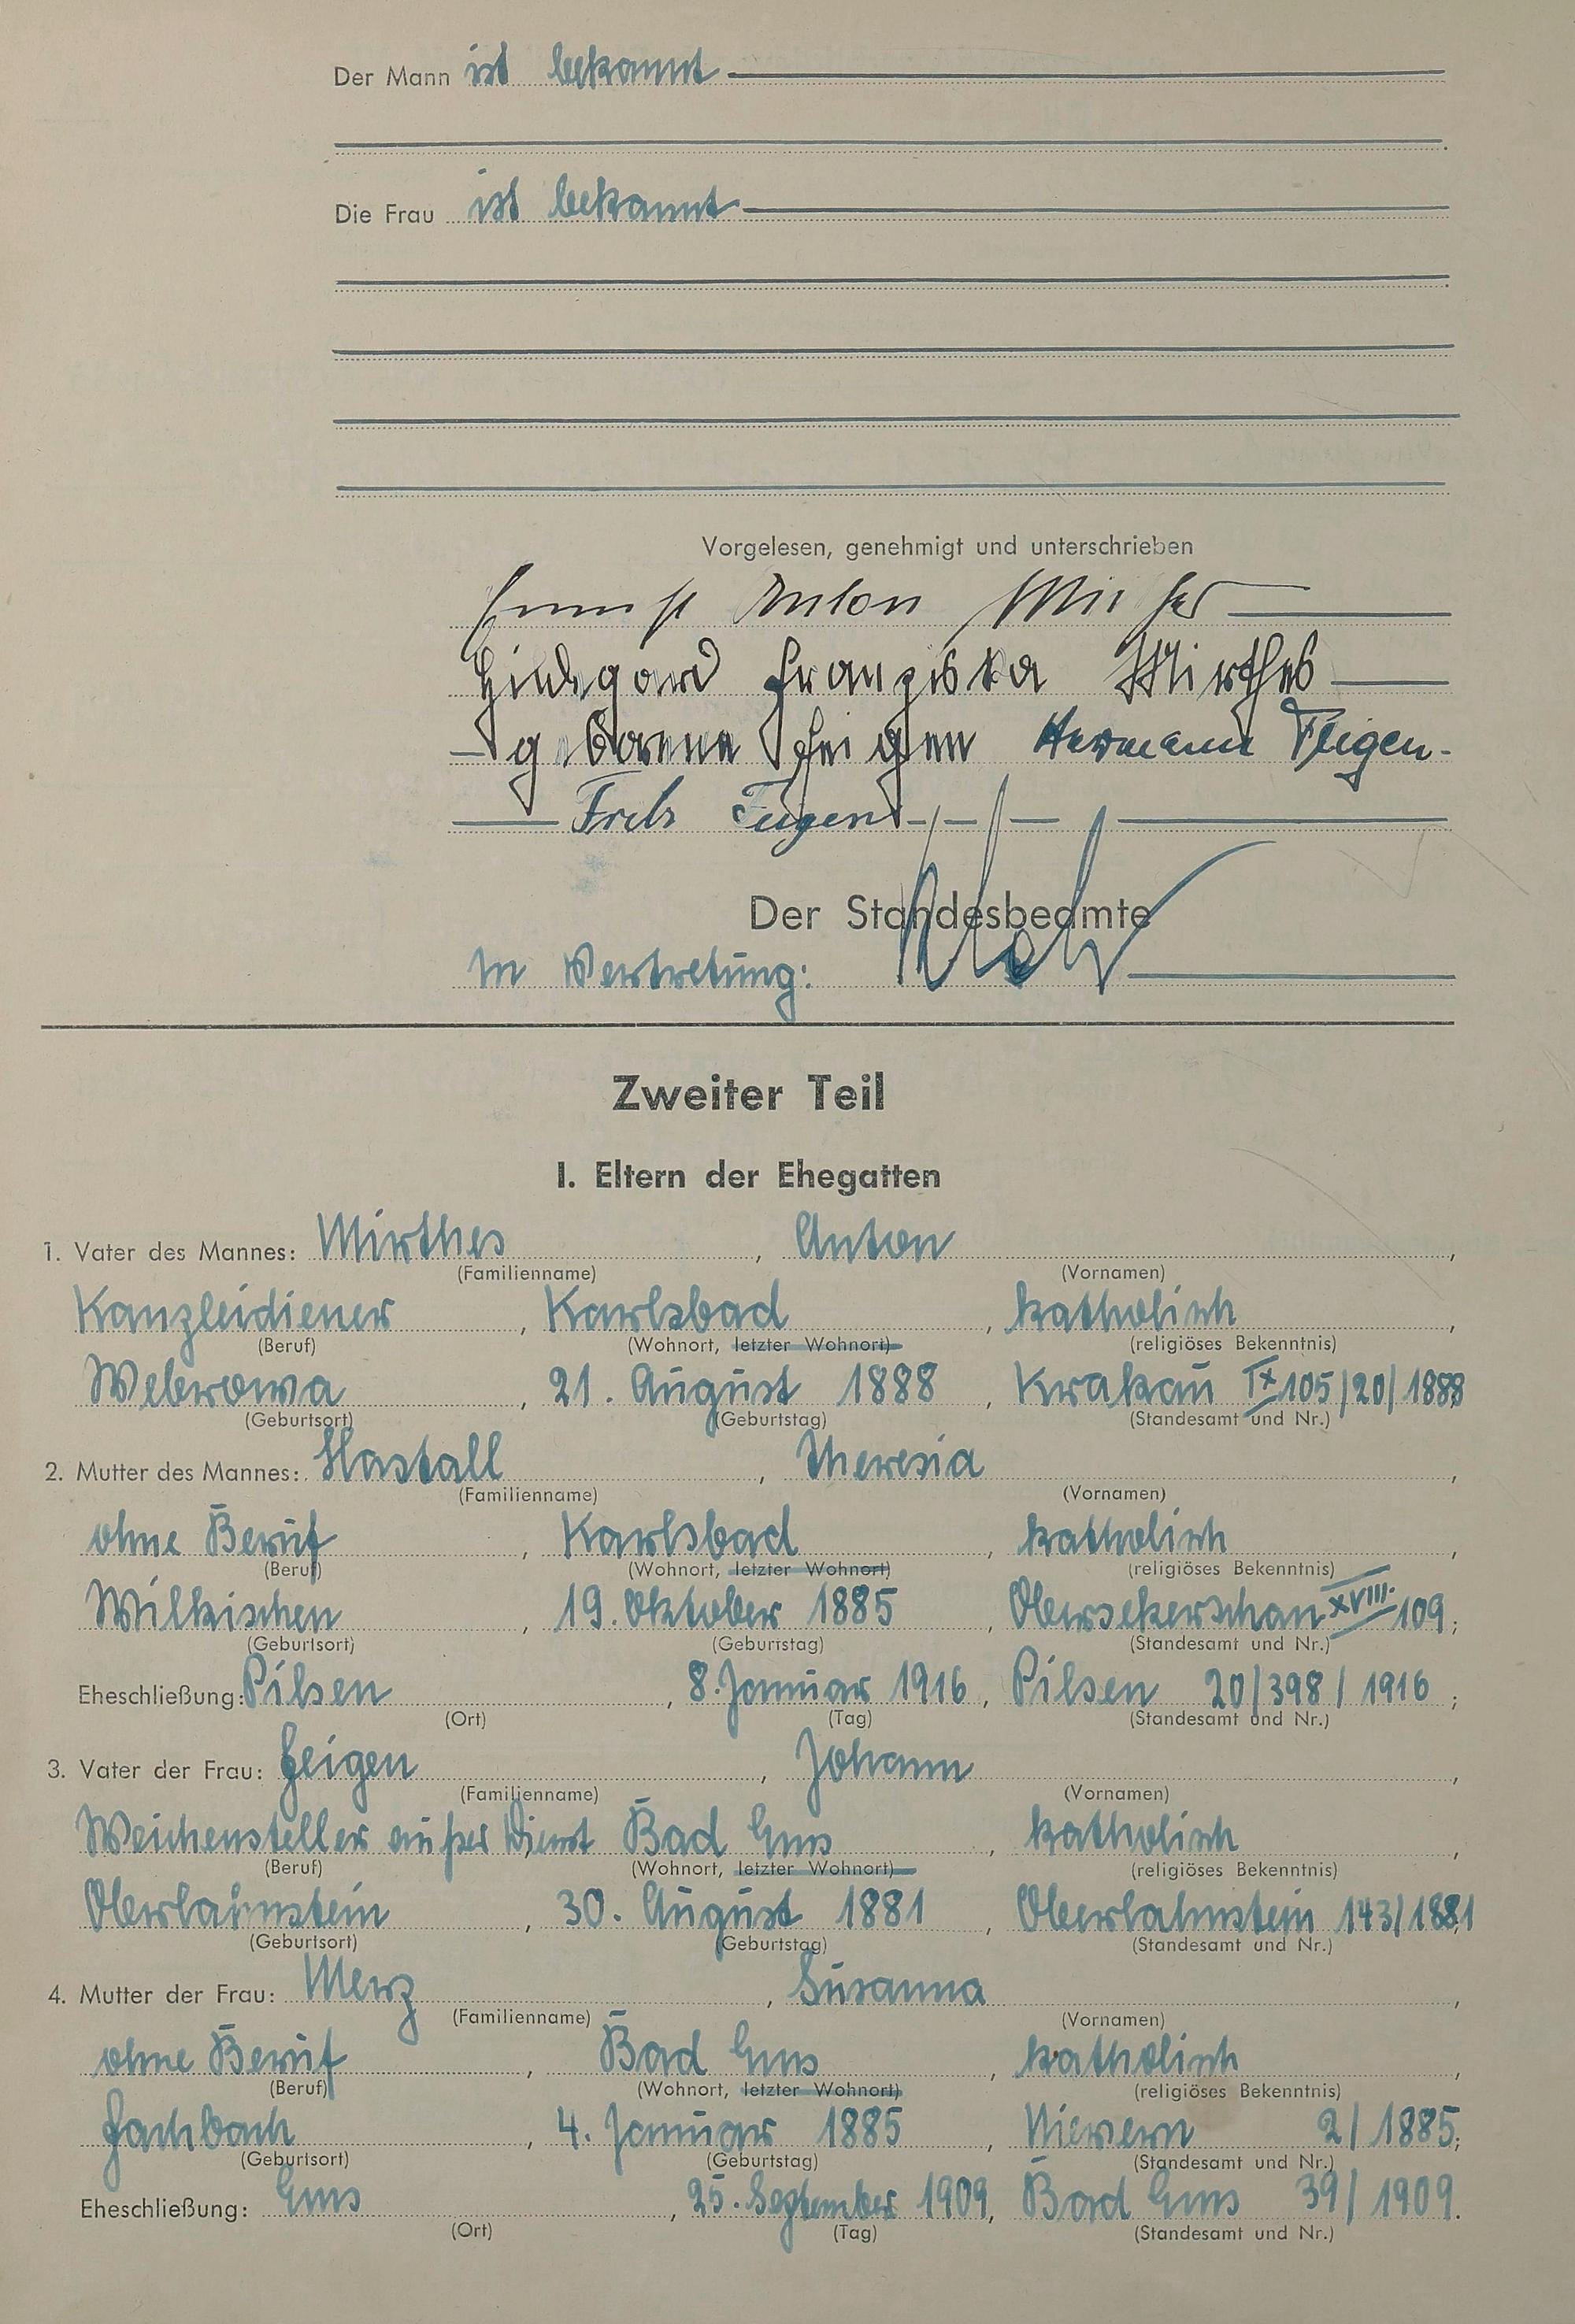 Der Mann ist bekannt
Die Frau ist bekannt
Vorgelesen, genehmigt und unterschrieben
Ernst Anton Mirthes
Hildegard Franziska Mirthes
geborene Feigen Hermann Feigen
Fritz Feigen
Der Standesbeamte
In Vertretung:
Zweiter Teil
I. Eltern der Ehegatten
1. Vater des Mannes: Mirthes, Anton,
(Familienname) (Vornamen)
Kanzleidiener, Karlsbad, katholisch,
(Beruf) (Wohnort, letzter Wohnort) (religiöses Bekenntnis)
Weberowa, 21. August 1888, Krakau IX 105/20/1888
(Geburtsort) (Geburtstag) (Standesamt und Nr.)
2. Mutter des Mannes: Hastall, Theresia,
(Familienname) (Vornamen)
ohne Beruf, Karlsbad, katholisch,
(Beruf) (Wohnort, letzter Wohnort) (religiöses Bekenntnis)
Wilkischen, 19. Oktober 1885, Obersekerschan XVIII. 109;
(Geburtsort) (Geburtstag) (Standesamt und Nr.)
Eheschließung: Pilsen, 8. Januar 1916, Pilsen 20/398/1916;
(Ort) (Tag) (Standesamt und Nr.)
3. Vater der Frau: Feigen, Johann,
(Familienname) (Vornamen)
Weichensteller außer Dienst Bad Ems, katholisch,
(Beruf) (Wohnort, letzter Wohnort) (religiöses Bekenntnis)
Oberlahnstein, 30. August 1881, Oberlahnstein 143/1881
(Geburtsort) (Geburtstag) (Standesamt und Nr.)
4. Mutter der Frau: Merz, Susanna,
(Familienname) (Vornamen)
ohne Beruf, Bad Ems, katholisch,
(Beruf) (Wohnort, letzter Wohnort) (religiöses Bekenntnis)
Fachbach, 4. Januar 1885, Nievern 2/1885;
(Geburtsort) (Geburtstag) (Standesamt und Nr.)
Eheschließung: Ems, 25. September 1909, Bad Ems 39/1909.
(Ort) (Tag) (Standesamt und Nr.)